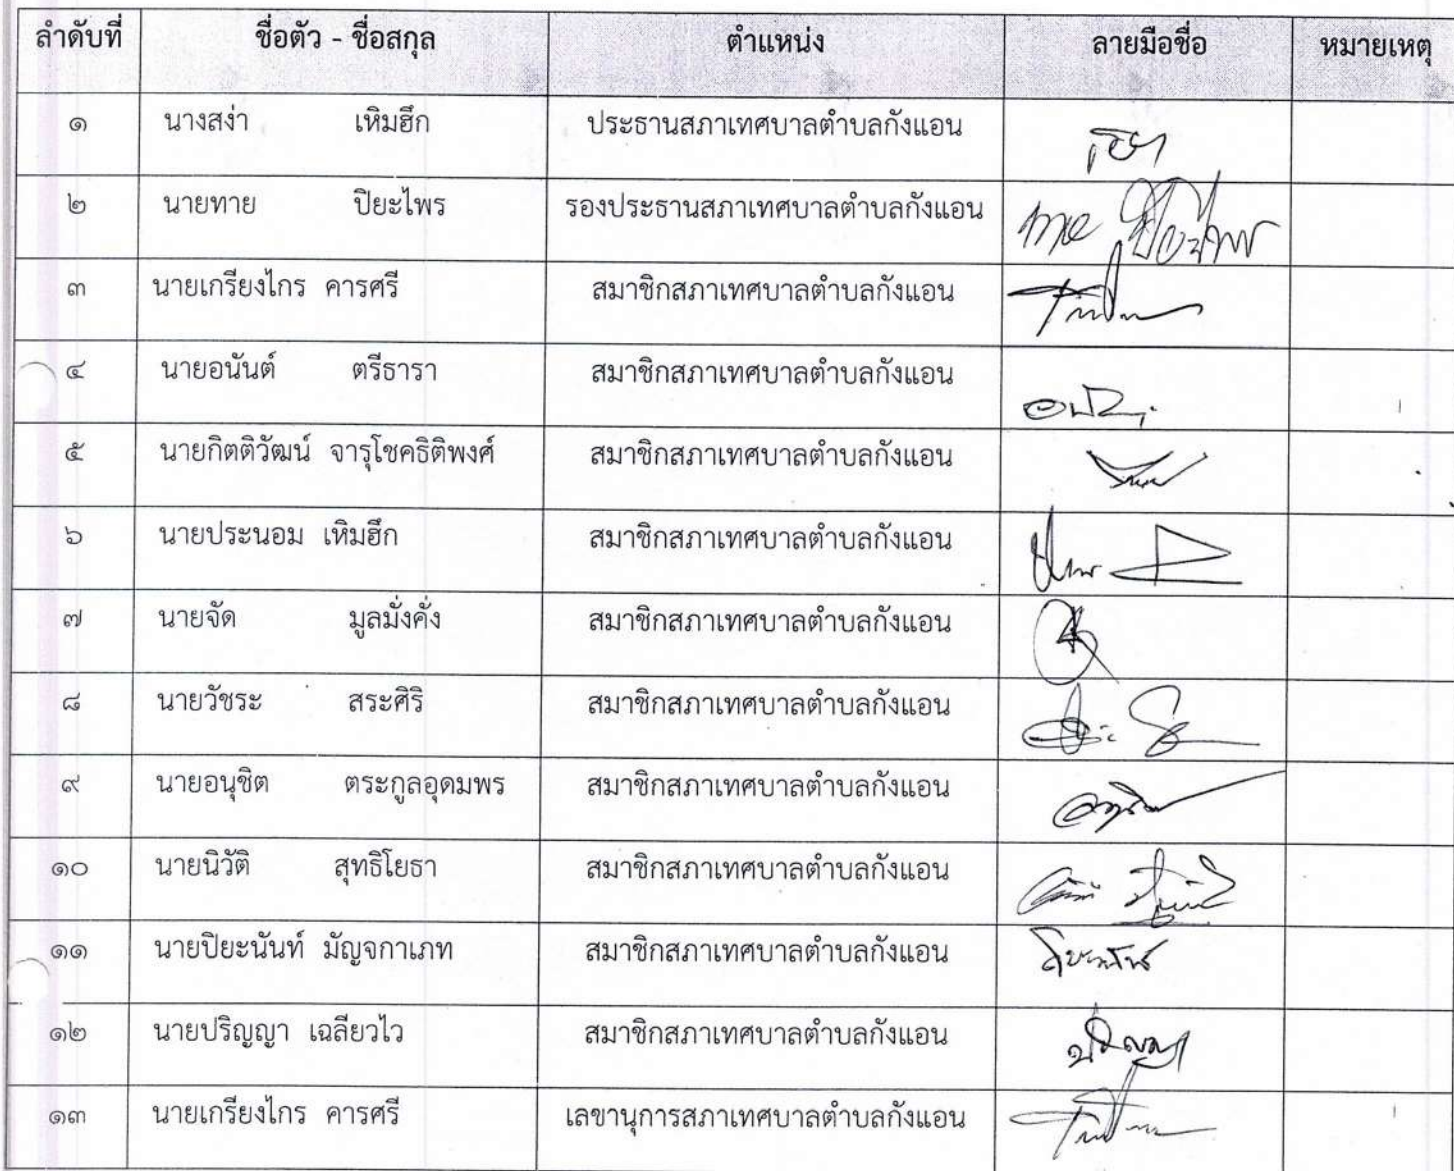 ลำดับที่ ชื่อตัว - ชื่อสกุล ตำแหน่ง ลายมือชื่อ หมายเหตุ
๑ นางสง่า เหิมฮึก ประธานสภาเทศบาลตำบลกังแอน
๒ นายทาย ปิยะไพร รองประธานสภาเทศบาลตำบลกังแอน ทาย ปิยะไพร
๓ นายเกรียงไกร คารศรี สมาชิกสภาเทศบาลตำบลกังแอน
๔ นายอนันต์ ตรีธารา สมาชิกสภาเทศบาลตำบลกังแอน
๕ นายกิตติวัฒน์ จารุโชคธิติพงศ์ สมาชิกสภาเทศบาลตำบลกังแอน
๖ นายประนอม เหิมฮึก สมาชิกสภาเทศบาลตำบลกังแอน
๗ นายจัด มูลมั่งคั่ง สมาชิกสภาเทศบาลตำบลกังแอน
๘ นายวัชระ สระศิริ สมาชิกสภาเทศบาลตำบลกังแอน
๙ นายอนุชิต ตระกูลอุดมพร สมาชิกสภาเทศบาลตำบลกังแอน
๑๐ นายนิวัติ สุทธิโยธา สมาชิกสภาเทศบาลตำบลกังแอน
๑๑ นายปิยะนันท์ มัญจกาเภท สมาชิกสภาเทศบาลตำบลกังแอน
๑๒ นายปริญญา เฉลียวไว สมาชิกสภาเทศบาลตำบลกังแอน ปริญญา
๑๓ นายเกรียงไกร คารศรี เลขานุการสภาเทศบาลตำบลกังแอน